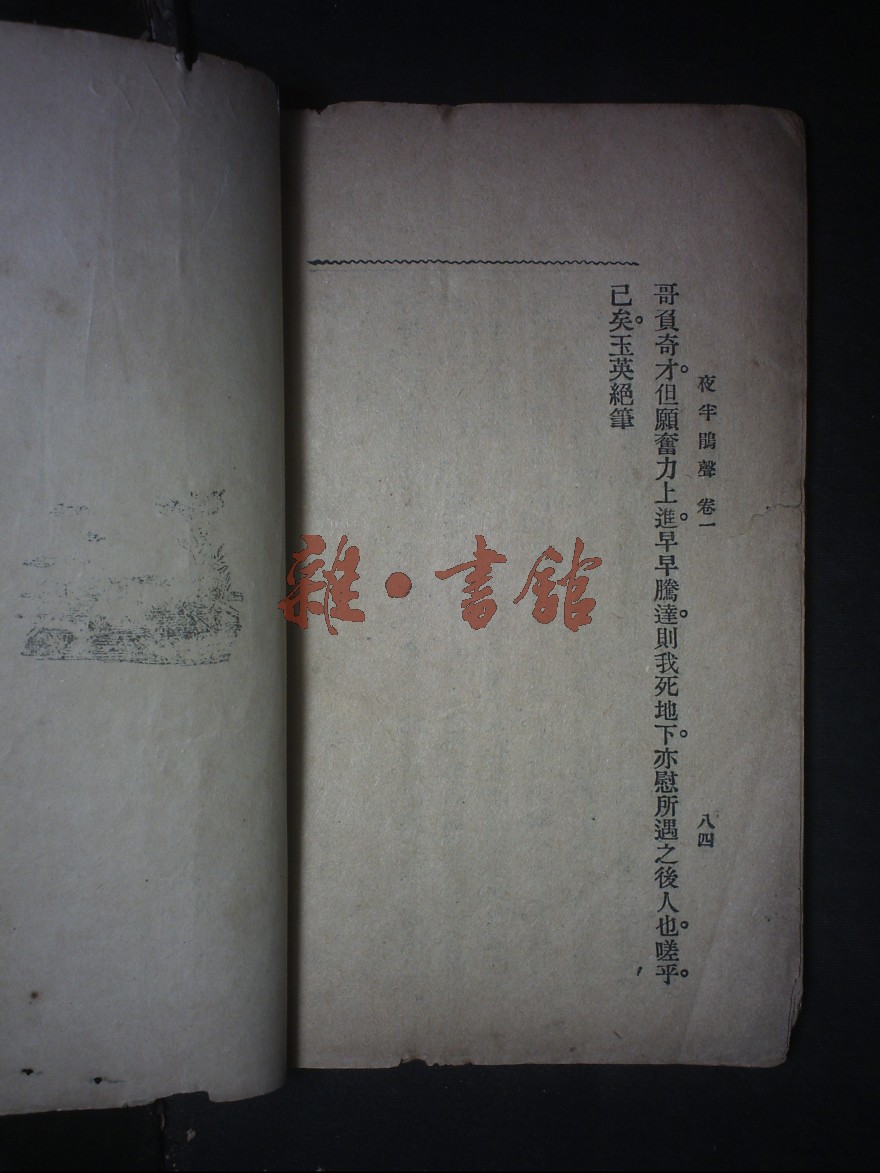 夜半鵑聲 卷一 八四
哥負奇才。但願奮力上進。早早騰達。則我死地下。亦慰所遇之後人也。嗟乎。
已矣。玉英絕筆
雜·書館